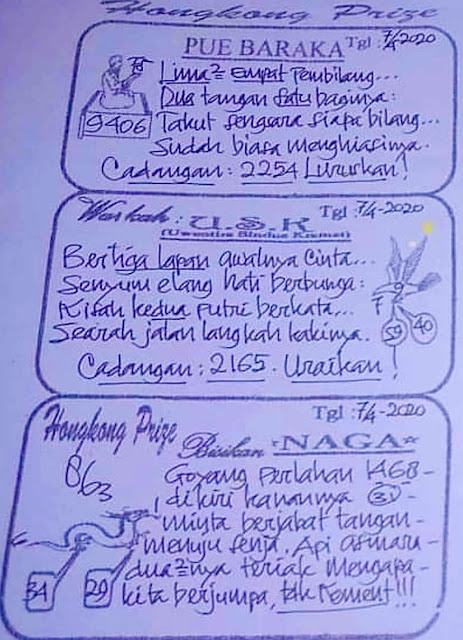 Hongkong Prize
PUE BARAKA Tgl : 7/4-2020
Lima² empat Pembilang...
Dua tangan satu baginya :
9406 Takut sengsara siapa bilang...
Sudah biasa menghiasinya.
Cadangan : 2254 Luruskan !
Warkah : U.S.K Tgl : 7/4-2020
Bertiga lapan awalnya Cinta...
Senyum elang hati berbunga :
Kisah kedua putri berkata...
Searah jalan langkah kakinya.
59 40
Cadangan : 2165. Uraikan !
Tgl : 7/4-2020
Hongkong Prize Bisikan *NAGA*
863
Goyang perlahan 1468-
dikiri kanannya 31 -
minta berjabat tangan -
menuju senja. Api asmara -
dua²nya teriak mengapa -
kita berjumpa, tak Koment !!!
34 29